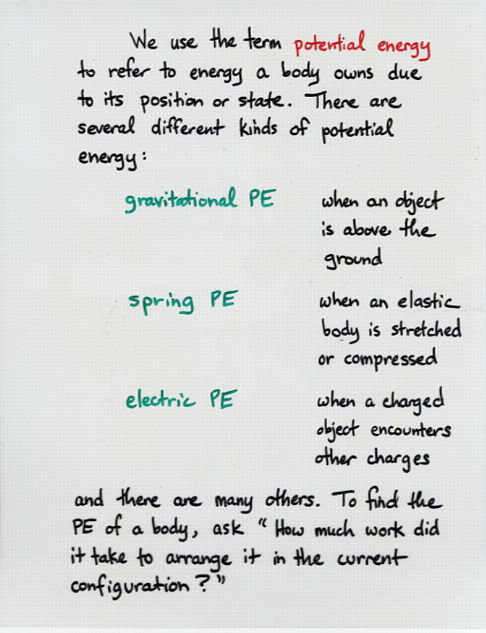 We use the term potential energy
to refer to energy a body owns due
to its position or state. There are
several different kinds of potential
energy:
gravitational PE when an object
is above the
ground
spring PE when an elastic
body is stretched
or compressed
electric PE when a charged
object encounters
other charges
and there are many others. To find the
PE of a body, ask "How much work did
it take to arrange it in the current
configuration?"